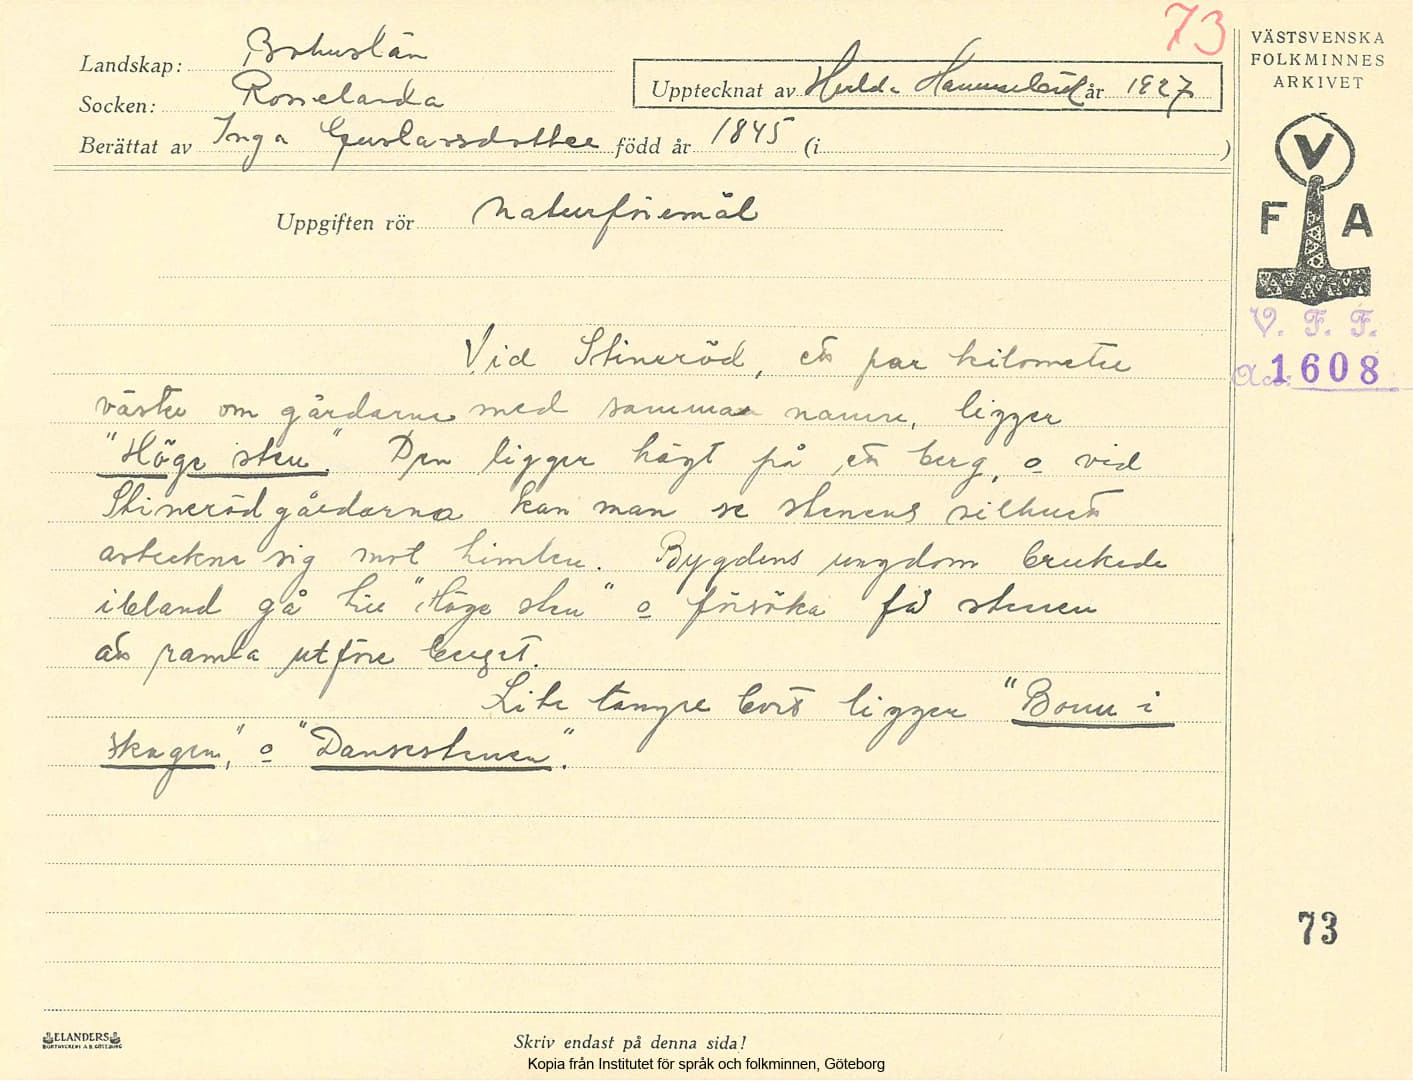 73
Landskap: Bohuslän
Socken: Rosselanda
Upptecknat av Hulda Hammarbäck år 1927
Berättat av Inga Gustavsdotter född år 1845 (i )
Uppgiften rör Naturföremål
VÄSTSVENSKA
FOLKMINNES
ARKIVET
V
F A
V. F. F.
Acc: 1608
Vid Stineröd, ett par kilometer
väster om gårdarne med samma namn, ligger
"Höge sten". Den ligger högt på ett berg, o vid
Stineröd gårdarna kan man se stenens silhuett
avteckna sig mot himlen. Bygdens ungdom brukade
ibland gå till "Höge sten" o försöka få stenen
att ramla utför berget.
Lite längre bort ligger "Bonn i
skogen", o "Dansestenen".
73
ELANDERS
BOKTRYCKERI A.B. GÖTEBORG
Skriv endast på denna sida!
Kopia från Institutet för språk och folkminnen, Göteborg